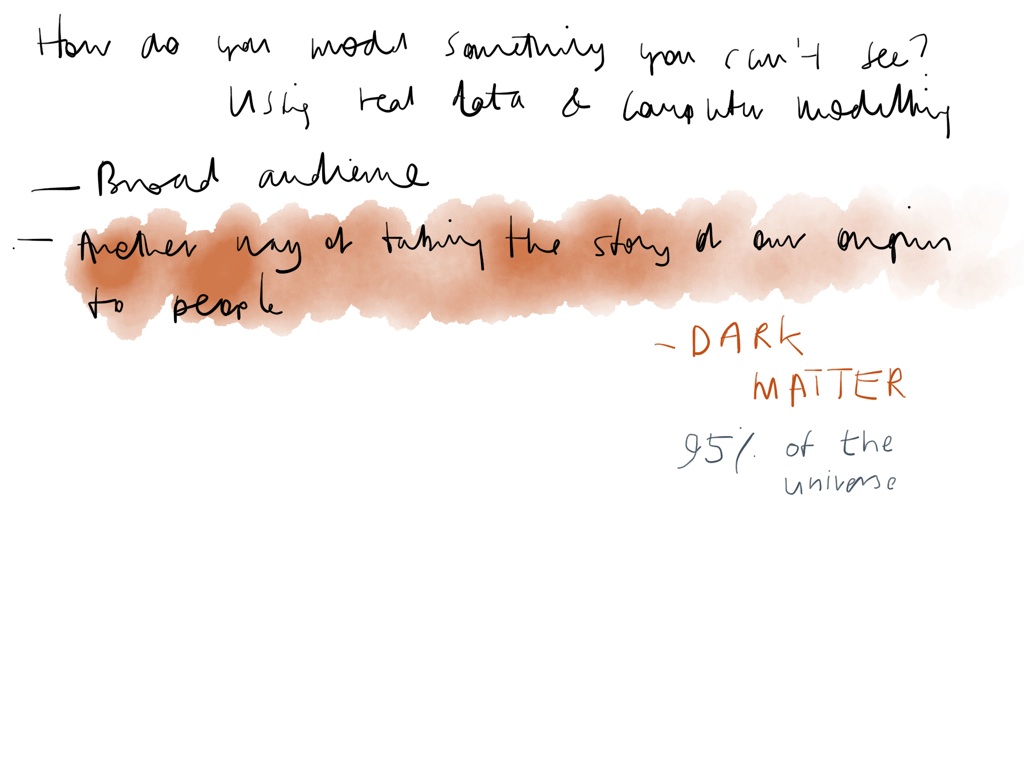 How do you model something you can't see?
Using real data & computer modelling
— Broad audience
— Another way of taking the story of our origins
to people
- DARK
MATTER
95% of the
universe